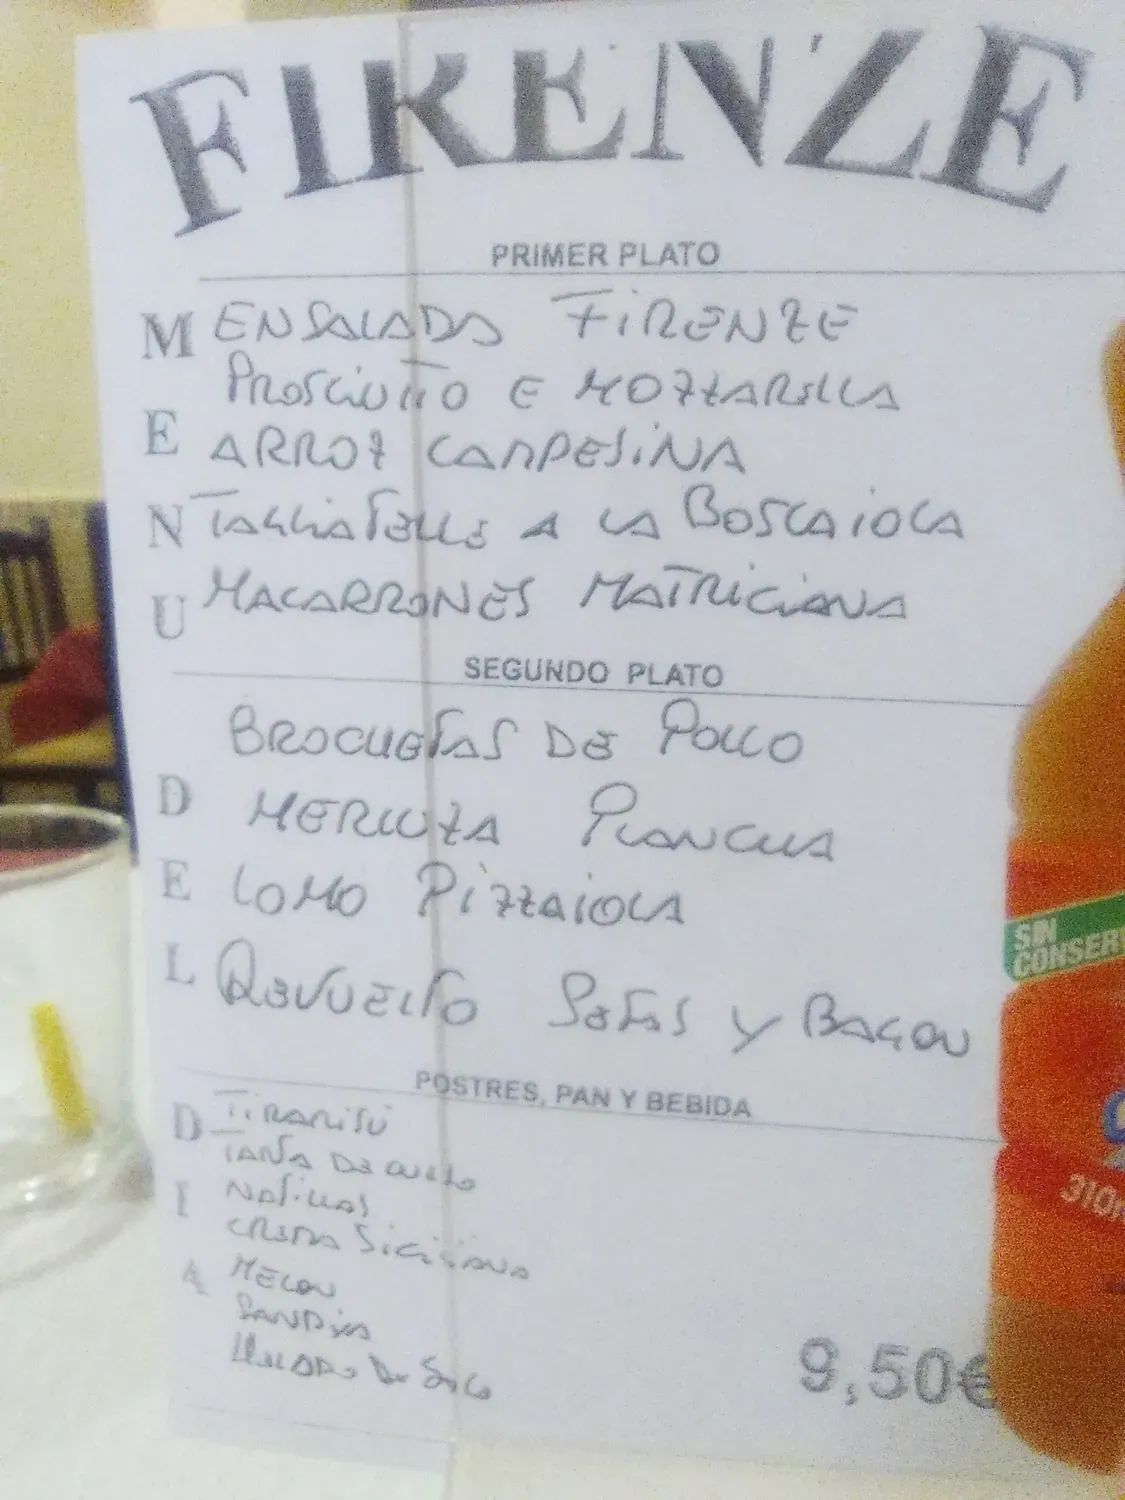 FIRENZE
PRIMER PLATO
MENU DEL DIA
ENSALADA FIRENZE
PROSCIUTTO E MOZZARELLA
ARROZ CAMPESINA
TAGLIATELLE A LA BOSCAIOLA
MACARRONES MATRICIANA
SEGUNDO PLATO
BROCHETAS DE POLLO
MERLUZA PLANCHA
LOMO PIZZAIOLA
REVUELTO SETAS Y BACON
POSTRES, PAN Y BEBIDA
TIRAMISÚ
TARTA DE
NATILLAS
CREMA SICILIANA
MELON
SANDIA
HELADO DE
9,50€
SIN
CONSERV